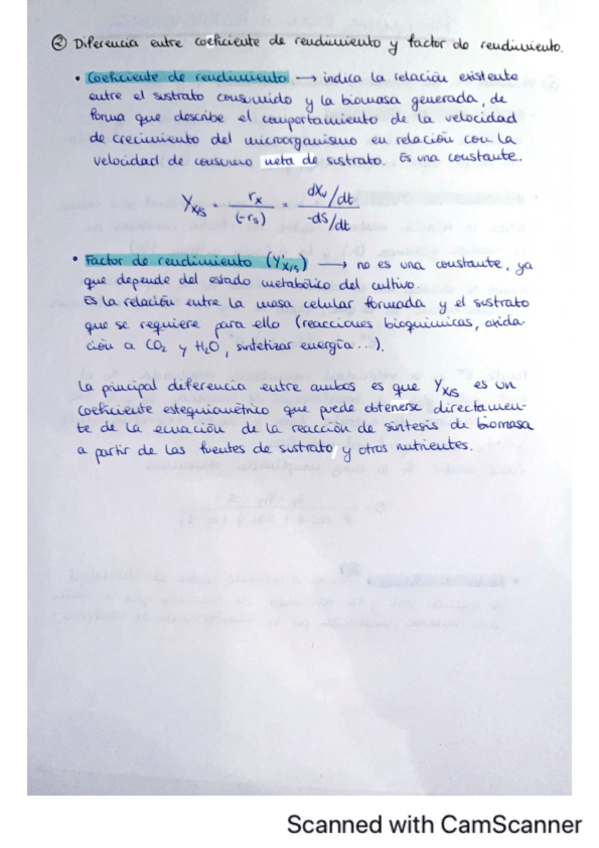 ② Diferencia entre coeficiente de rendimiento y factor de rendimiento.
• Coeficiente de rendimiento → indica la relación existente
entre el sustrato consumido y la biomasa generada, de
forma que describe el comportamiento de la velocidad
de crecimiento del microorganismo en relación con la
velocidad de consumo neta de sustrato. Es una constante.
Yx/s = rx / (-rs) = dXv/dt / -dS/dt
• Factor de rendimiento (Y'x/s) → no es una constante, ya
que depende del estado metabólico del cultivo.
Es la relación entre la masa celular formada y el sustrato
que se requiere para ello (reacciones bioquímicas, oxida-
ción a CO2 y H2O, sintetizar energía...).
La principal diferencia entre ambos es que Yx/s es un
coeficiente estequiométrico que puede obtenerse directamen-
te de la ecuación de la reacción de síntesis de biomasa
a partir de las fuentes de sustrato y otros nutrientes.
Scanned with CamScanner